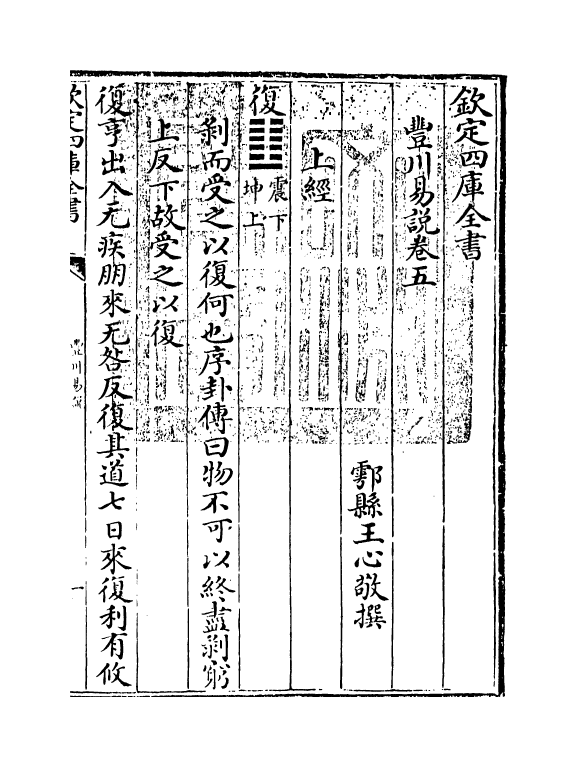 欽定四庫全書
豐川易說卷五
鄠縣王心敬撰
上經
復䷗震下坤上
剥而受之以復何也序卦傳曰物不可以終盡剥窮
上反下故受之以復
復亨出入无疾朋來无咎反復其道七日來復利有攸
欽定四庫全書
豐川易說
一